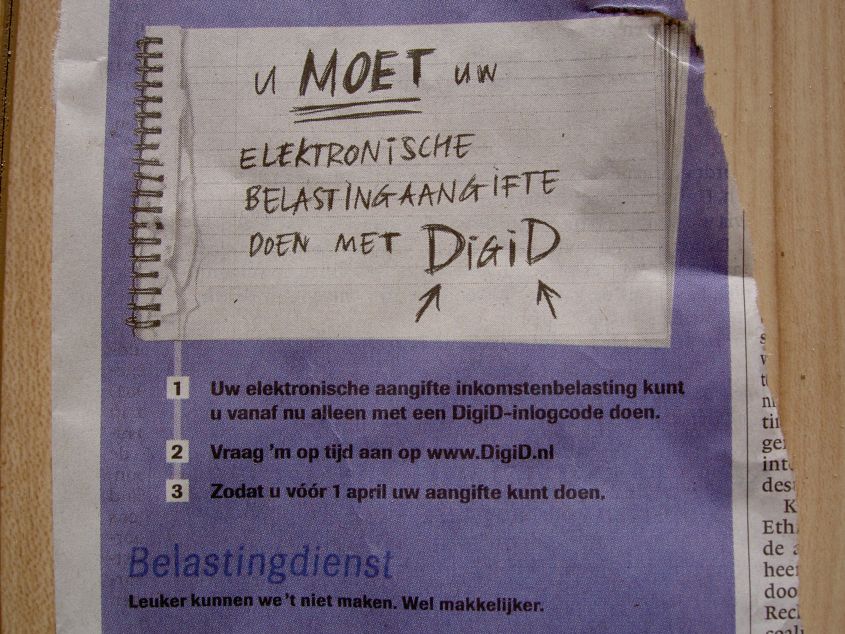 U MOET UW
ELEKTRONISCHE
BELASTINGAANGIFTE
DOEN MET DiGiD
1 Uw elektronische aangifte inkomstenbelasting kunt
u vanaf nu alleen met een DigiD-inlogcode doen.
2 Vraag 'm op tijd aan op www.DigiD.nl
3 Zodat u vóór 1 april uw aangifte kunt doen.
Belastingdienst
Leuker kunnen we 't niet maken. Wel makkelijker.